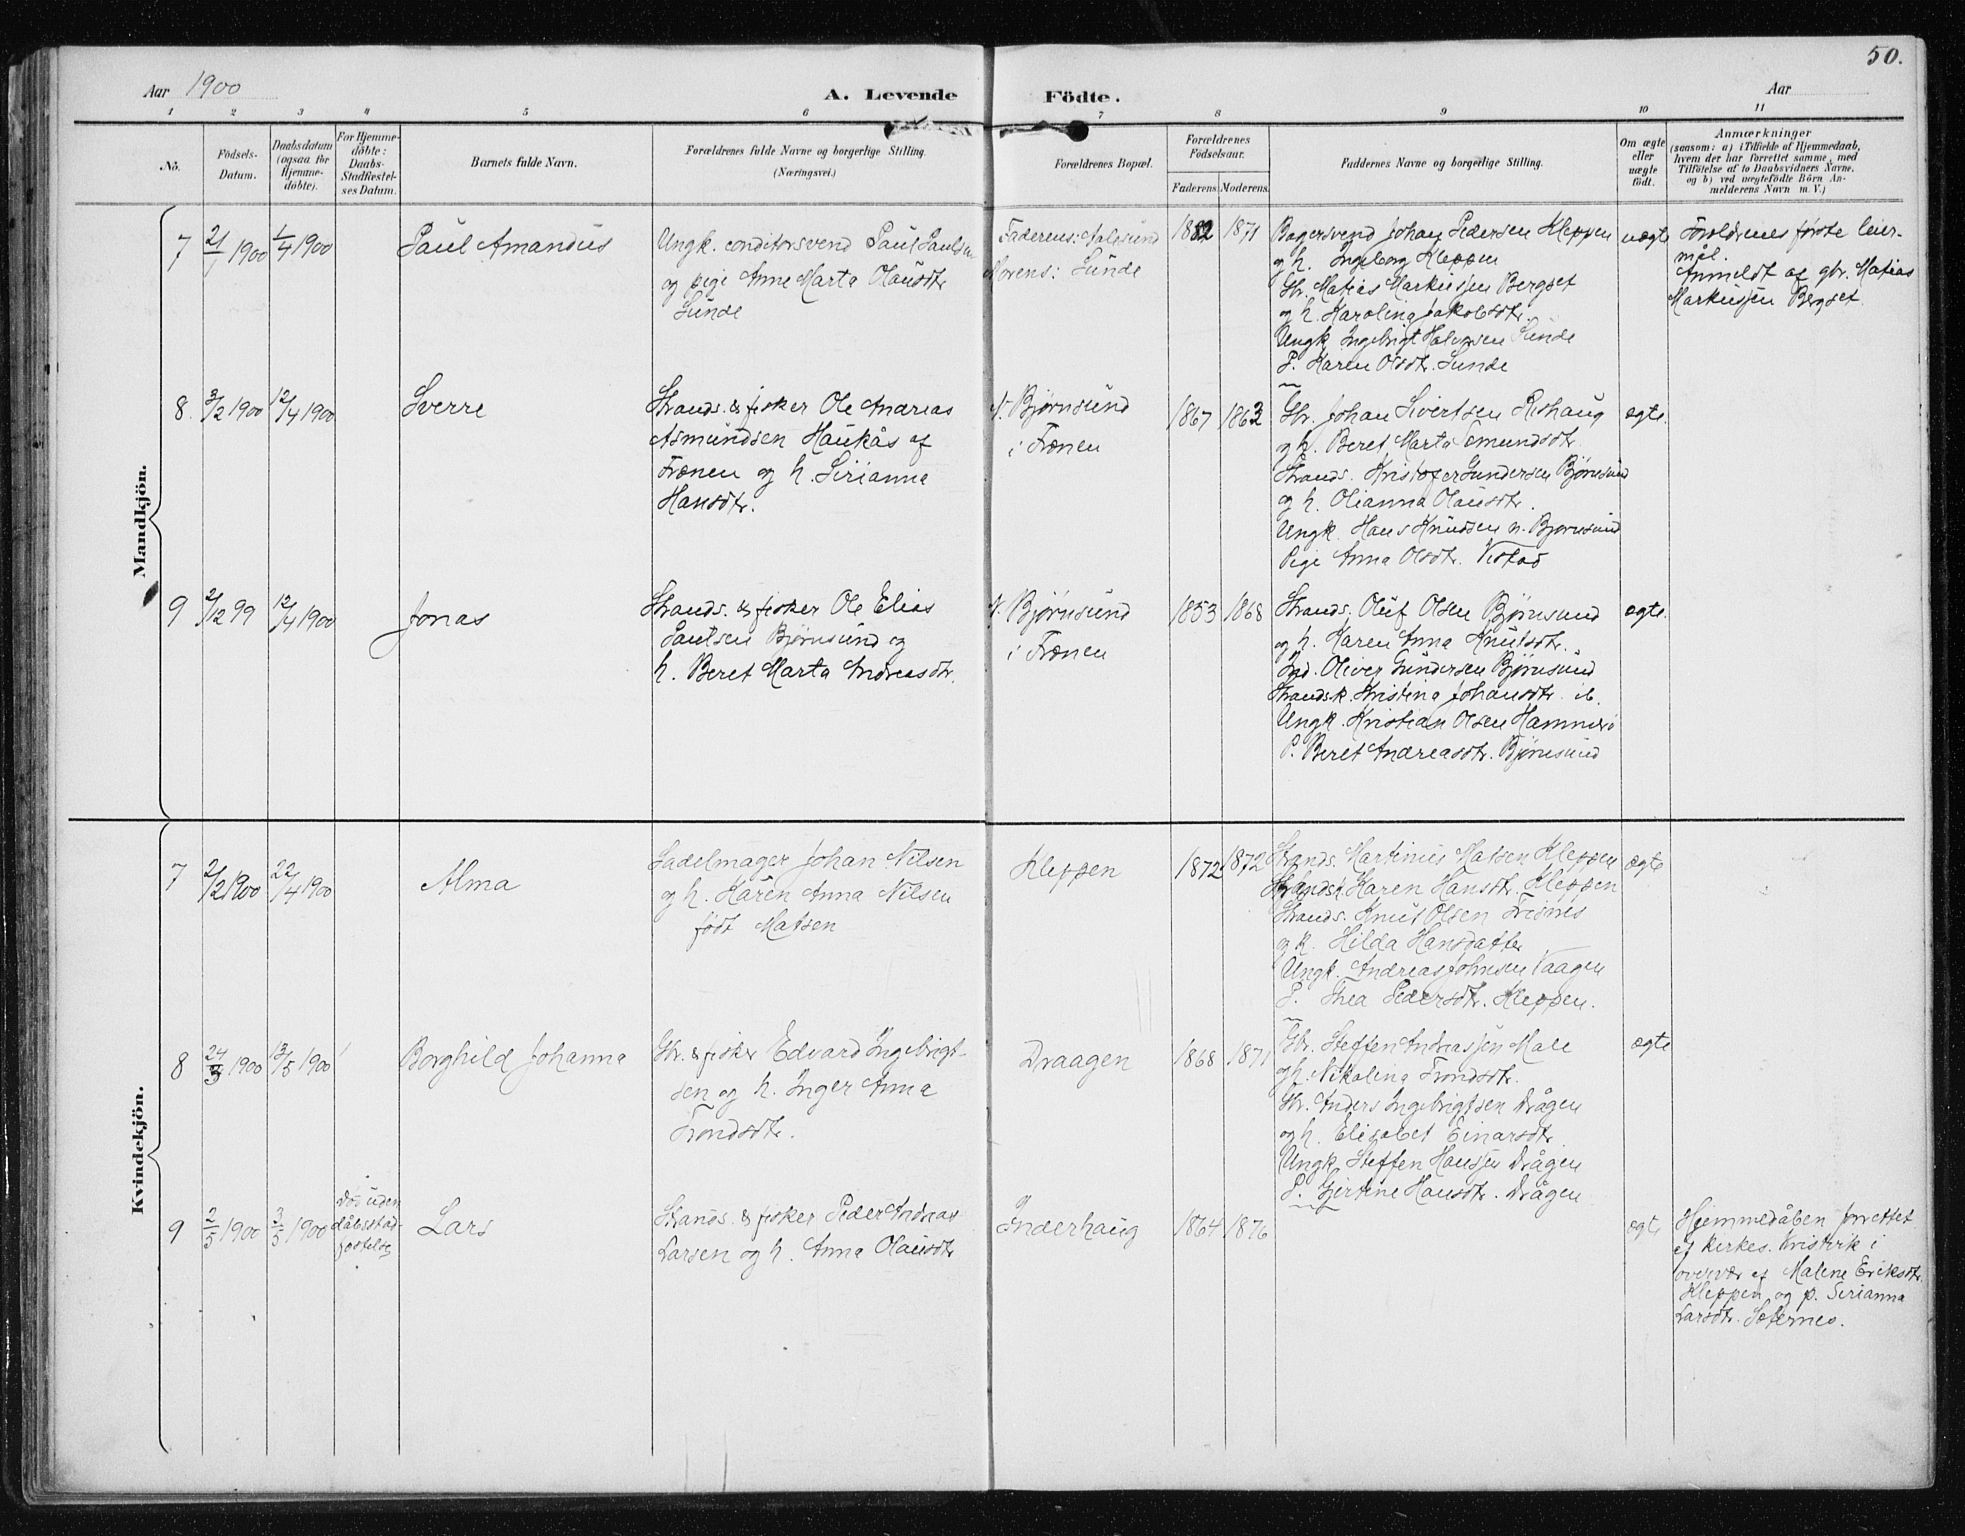 50.
Aar 1900
A. Levende Födte.
Aar
1 2 3 4 5 6 7 8 9 10 11
No.
Födsels-Datum.
Daabsdatum (ogsaa for Hjemme-döbte).
For Hjemme-döbte: Daabs-Stadfestel-ses Datum.
Barnets fulde Navn.
Forældrenes fulde Navne og borgerlige Stilling. (Næringsvei.)
Forældrenes Bopæl.
Forældrenes Födselsaar.
Faderens. Moderens.
Faddernes Navne og borgerlige Stilling.
Om ægte eller uægte födt.
Anmærkninger
(saasom: a) i Tilfælde af Hjemmedaab, hvem der har forrettet samme, med Tilföielse af to Daabsvidners Navne, og b) ved uægtefödte Börn An-melderens Navn m. V.)
Mandkjön.
7 21/1 1900 1/4 1900
Paul Amandus
Ungk. conditorsvend Paul Paulsen
og pige Anne Marta Olausdtr
Sunde
Faderens: Aalesund
Morens: Sunde
1882 1871
Bagersvend Johan Pedersen Kleppen
og h. Ingeborg Kleppen
Gbr. Matias Markussen Bergset
og h. Karolina Jakobsdtr.
Ungk. Ingebrigt Halvorsen Sunde
P. Karen Olsdtr. Sunde
uægte
Forældrenes første leier-
mål.
Anmeldt af gbr. Matias
Markussen Bergset.
8. 3/2 1900 12/4 1900
Sverre
Strands. & fisker Ole Andreas
Asmundsen Haukås af
Frænen og h. Serianna
Hansdtr.
N. Bjørnsund
i Frænen
1867 1863
Gbr. Johan Sivertsen Rishaug
og h. Beret Marta Emundsdtr.
Strands. Kristofer Gundersen Bjørnsund
og h. Olianna Olausdtr.
Ungk. Hans Knudsen n. Bjørnsund
Pige Anna Olsdtr. Vistad
ægte.
9 2/12 99 12/4 1900
Jonas
Strands. & fisker Ole Elias
Paulsen Bjørnsund og
h. Beret Marta Andreasdtr.
N. Bjørnsund
i Frænen
1853 1868
Strands. Oluf Olsen Bjørnsund
og h. Karen Anna Knutsdtr.
Oliver Gundersen Bjørnsund
Strandsk. Kristina Johansdtr. ib.
Ungk. Kristian Olsen Hammerø
P. Beret Andreasdtr. Bjørnsund
ægte.
Kvindekjön.
7 2/2 1900 22/4 1900
Alma
Sadelmager Johan Nilsen
og h. Karen Anna Nilsen
født Matsen
Kleppen
1872 1872
Strands. Martinus Matsen Kleppen
Karen Hansdtr. Kleppen
Strands. Knut Olsen
og k. Hilda Hansdatter
Ungk. Andreas Johnsen Vaagen
P. Thea Pedersdtr. Kleppen.
ægte
8 24/3 1900 13/5 1900
Borghild Johanna
Gbr. & fisker Edvard Ingebrigt-
sen og h. Inger Anna
Trondsdtr.
Draagen
1868 1871
Gbr. Steffen Andreassen Male
og h. Nikolina Trondsdtr.
Gbr. Anders Ingebrigtsen Drågen
og h. Elisabet Einarsdtr.
Ungk. Steffen Hansen Drågen
P. Gjertine Hansdtr. Drågen
ægte
9 2/5 1900 3/5 1900
Død uden
dåbsstad-
fæstelse
Lars
Strands. & fisker Peder Andreas
Larsen og h. Anna Olausdtr
Inderhaug
1864 1876
ægte
Hjemmedåben forrettet
af kirkes. Kristvik i
overvær af Malene Eriksdtr.
Kleppen og p. Serianna
Larsdtr. Sæternes.